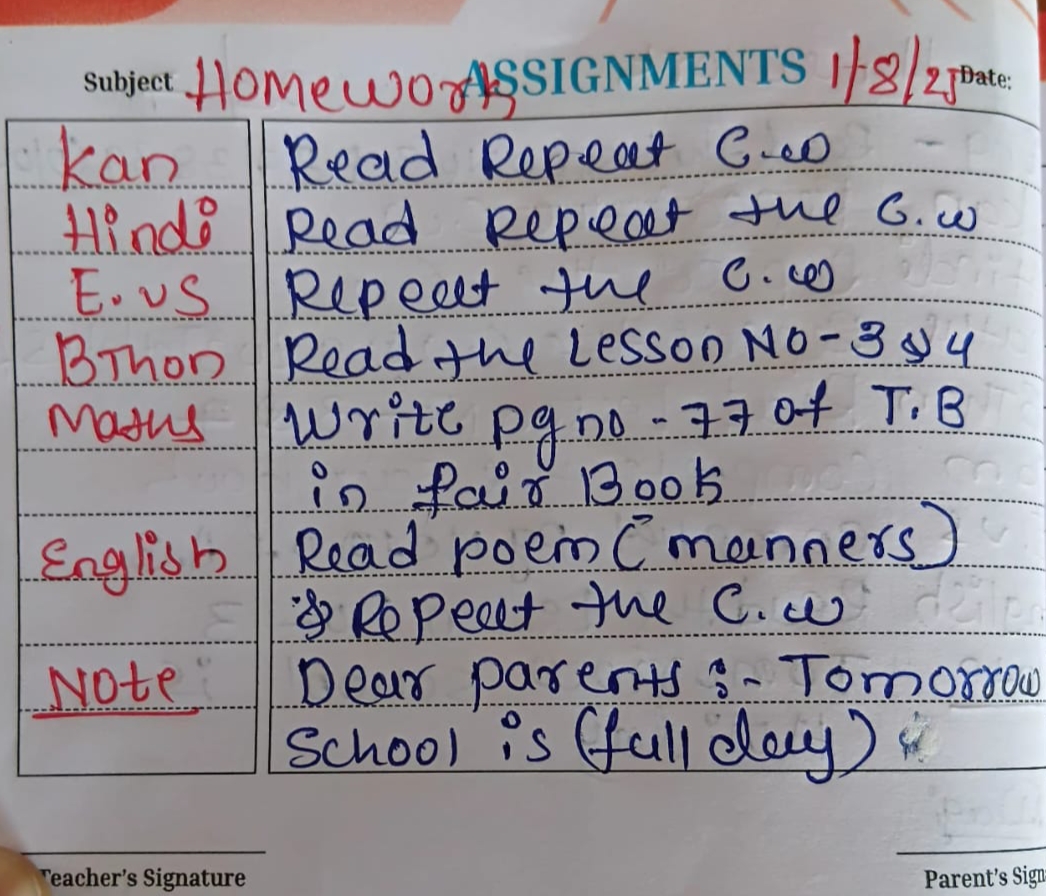 Subject Homework ASSIGNMENTS 1/8/25 Date:
Kan Read Repeat C.w
Hindi Read Repeat the C.w
E.vs Repeat the C.w
BThon Read the Lesson No-3 & 4
Maths Write pg no - 77 of T.B
in fair Book
English Read poem (manners)
& Repeat the C.w
Note Dear parents :- Tomorrow
School is (full day)
Teacher's Signature Parent's Sign